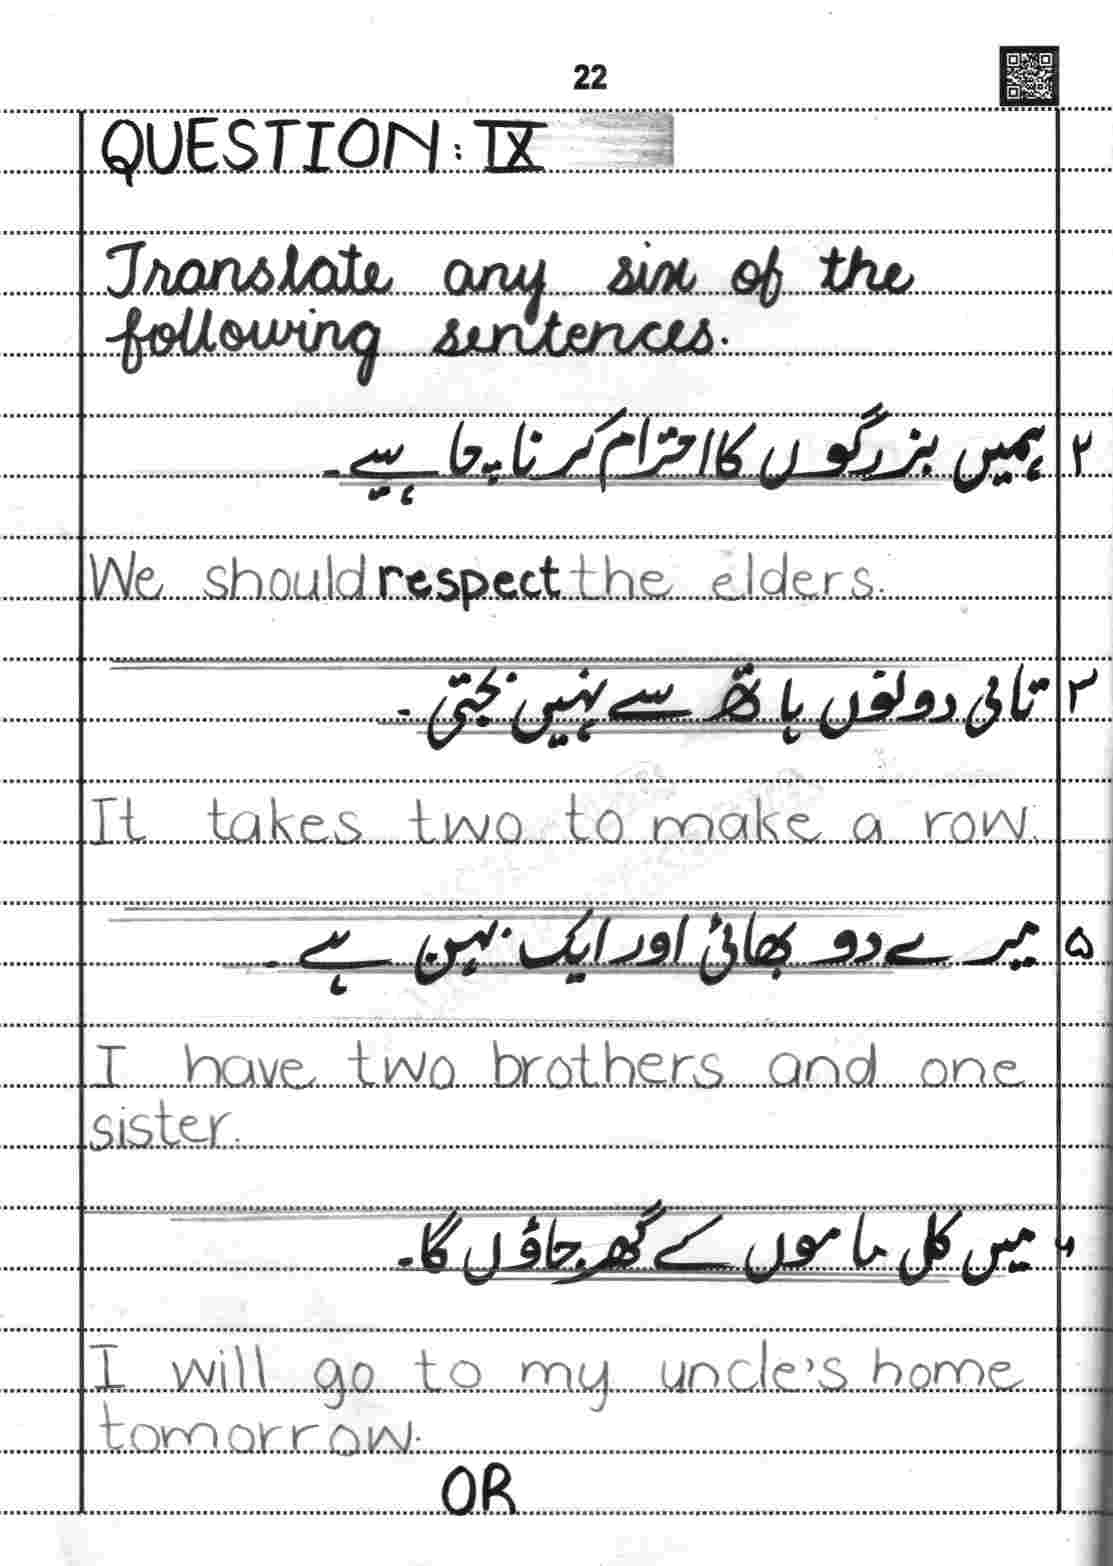 22
QUESTION: IX
Translate any six of the
following sentences.
۲ ہمیں بزرگوں کا احترام کرنا چاہیے۔
We should respect the elders.
۳ تالی دونوں ہاتھ سے نہیں بجتی۔
It takes two to make a row.
۵ میرے دو بھائی اور ایک بہن ہے۔
I have two brothers and one
sister.
میں کل ماموں کے گھر جاؤں گا۔
I will go to my uncle's home
tomorrow.
OR